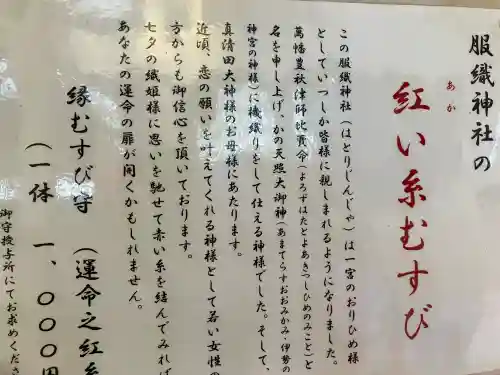 服織神社の
紅い糸むすび
あか
この服織神社(はとりじんじゃ)は一宮のおりひめ様
としていつしか皆様に親しまれるようになりました。
萬幡豊秋津師比賣命(よろずはたとよあきつしひめのみこと)と
名を申し上げ、かの天照大御神(あまてらすおおみかみ・伊勢の
神宮の神様)に機織りをして仕える神様でした。そして、
真清田大神様のお母様にあたります。
近頃、恋の願いを叶えてくれる神様として若い女性の
方からも御信心を頂いております。
七夕の織姫様に思いを馳せて赤い糸を結んでみれば
あなたの運命の扉が開くかもしれません。
縁むすび守 (運命之紅糸
(一体 一、〇〇〇円
御守授与所にてお求めくださ